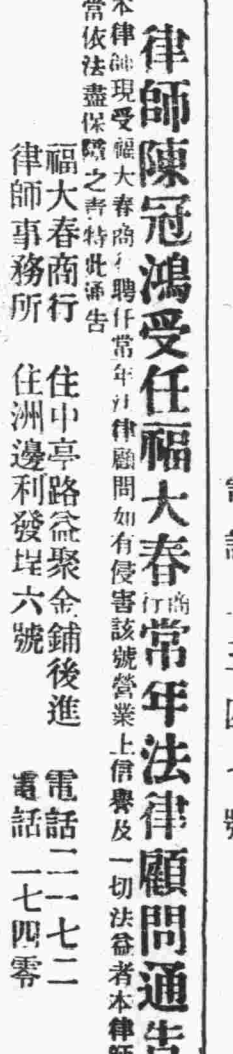 律師陳冠鴻受任福大春商行常年法律顧問通告
本律師現受福大春商行聘任常年法律顧問如有侵害該號營業上信譽及一切法益者本律師
當依法盡保障之責特此通告
福大春商行 住中亭路益聚金鋪後進 電話二一七二
律師事務所 住洲邊利發埕六號 電話一七四零